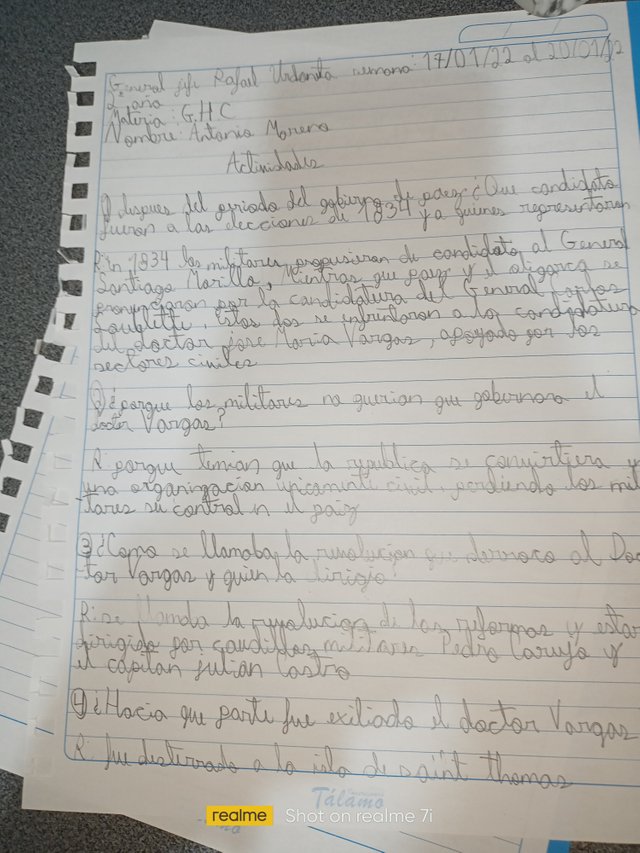 General jefe Rafael Urdaneta semana: 17/01/22 al 20/01/22
2 año
Materia: G.H.C
Nombre: Antonia Moreno
Actividades
despues del periodo del gobierno de paez ¿Que candidato
fueron a las elecciones de 1834 y a quienes representaron
R: in 1834 los militares propusieron de candidato al General
Santiago Mariño, Mientras que paez y el oligarca se
pronunciaron por la candidatura del General Carlos
Soublette. Estos dos se enfrentaron a la candidatura
del doctor jose Maria Vargas, apoyado por los
sectores civiles
② ¿porque los militares no querian que gobernara el
doctor Vargas?
R porque temian que la republica se convirtiera
una organizacion unicamente civil, perdiendo los mili
tares su control in el paiz
③ ¿Como se llamaba la revolucion que derroco al Doc
tor Vargas y quien la dirigio?
R: se llamaba la revolucion de las reformas y estar
dirigida por caudillos militares Pedro Carujo y
el capitan julian Castro
④ ¿Hacia que parte fue exiliado el doctor Vargas
R fue desterrado a la isla de saint thomas
Tálamo
realme Shot on realme 7i